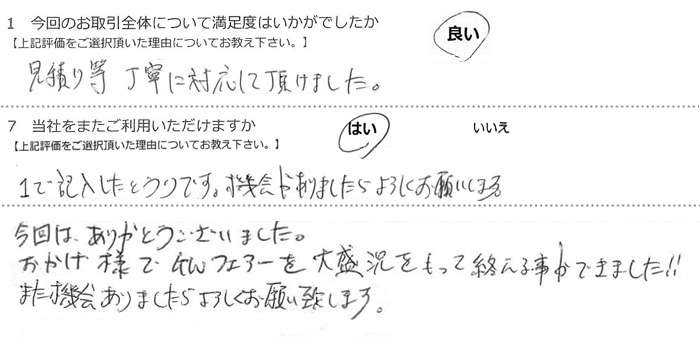 1 今回のお取引全体について満足度はいかがでしたか 良い
【上記評価をご選択頂いた理由についてお教え下さい。】
見積り等 丁寧に対応して頂けました。
7 当社をまたご利用いただけますか はい いいえ
【上記評価をご選択頂いた理由についてお教え下さい。】
1で記入したとうりです。機会がありましたらよろしくお願いします
今回は、ありがとうございました。
おかげ様でGWフェアーを大盛況をもって終える事ができました!!
また機会ありましたらよろしくお願い致します。